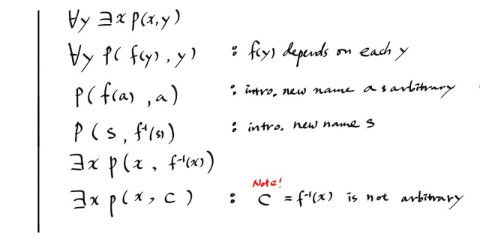 ∀y ∃x P(x,y)
∀y P( f(y) , y) : f(y) depends on each y
P( f(a) , a) : intro. new name a as arbitrary
P( s , f⁻¹(s)) : intro. new name s
∃x P( x , f⁻¹(x))
Note!
∃x P( x , C ) : C = f⁻¹(x) is not arbitrary